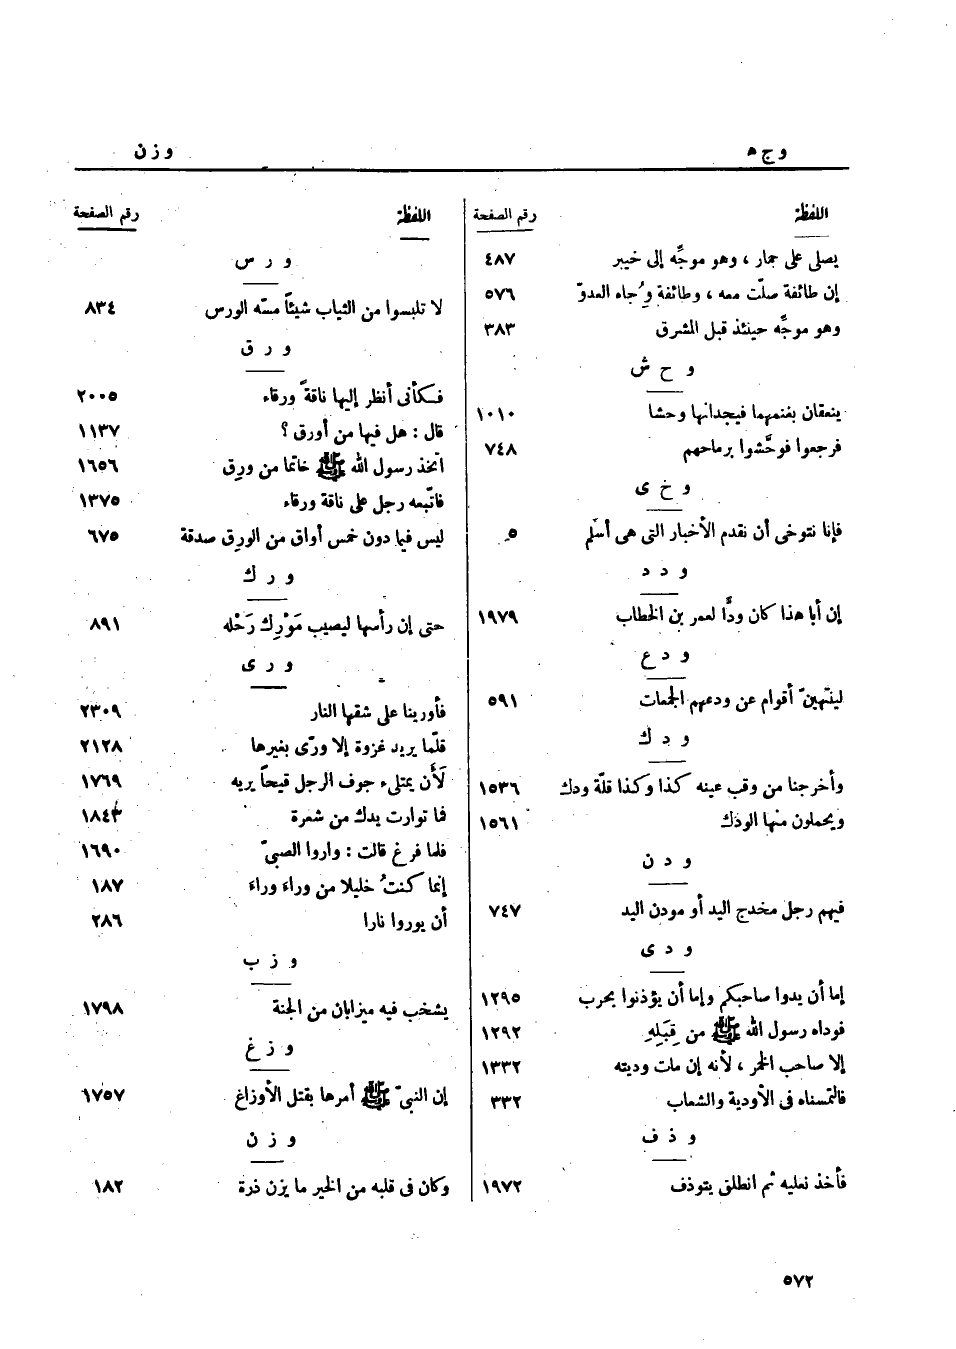 وجه
وزن
اللفظة رقم الصفحة
يصلى على حمار ، وهو موجِّه إلى خيبر ٤٨٧
إن طائفة صلّت معه ، وطائفة وِجُاه العدوّ ٥٧٦
وهو موجِّه حينئذ قبل المشرق ٣٨٣
و ح ش
ينعقان بغنمهما فيجدانها وحشا ١٠١٠
فرجعوا فوحَّشوا برماحهم ٧٤٨
و خ ى
فإنا نتوخى أن نقدم الأخبار التى هى أسلم ٥
و د د
إن أبا هذا كان ودًّا لعمر بن الخطاب ١٩٧٩
و د ع
لينتهينّ أقوام عن ودعهم الجمعات ٥٩١
و د ك
وأخرجنا من وقب عينه كذا وكذا قلّة ودك ١٥٣٦
ويحملون منها الودك ١٥٦١
و د ن
فيهم رجل مخدج اليد أو مودن اليد ٧٤٧
و د ى
إما أن يدوا صاحبكم وإما أن يؤذنوا بحرب ١٢٩٥
فوداه رسول الله ﷺ من قِبَلِهِ ١٢٩٢
إلا صاحب الخمر ، لأنه إن مات وديته ١٣٣٢
فالتمسناه فى الأودية والشعاب ٣٣٢
و ذ ف
فأخذ نعليه ثم انطلق يتوذف ١٩٧٢
اللفظة رقم الصفحة
و ر س
لا تلبسوا من الثياب شيئاً مسّه الورس ٨٣٤
و ر ق
فكأنى أنظر إليها ناقةً ورقاء ٢٠٠٥
قال : هل فيها من أورق ؟ ١١٣٧
اتّخذ رسول الله ﷺ خاتما من ورِق ١٦٥٦
فاتّبعه رجل على ناقة ورقاء ١٣٧٥
ليس فيما دون خمس أواق من الورِق صدقة ٦٧٥
و ر ك
حتى إن رأسها ليصيب مَوْرِك رَحْله ٨٩١
و ر ى
فأورينا على شقها النار ٢٣٠٩
قلّما يريد غزوة إلا ورّى بغيرها ٢١٢٨
لَأن يمتلىء جوف الرجل قيحاً يريه ١٧٦٩
فما توارت يدك من شعرة ١٨٤٣
فلما فرغ قالت : واروا الصبىّ ١٦٩٠
إنما كنتُ خليلا من وراءَ وراءَ ١٨٧
أن يوروا نارا ٢٨٦
و ز ب
يشخب فيه ميزابان من الجنة ١٧٩٨
و ز غ
إن النبىّ ﷺ أمرها بقتل الأوزاغ ١٧٥٧
و ز ن
وكان فى قلبه من الخير ما يزن ذرة ١٨٢
٥٧٢